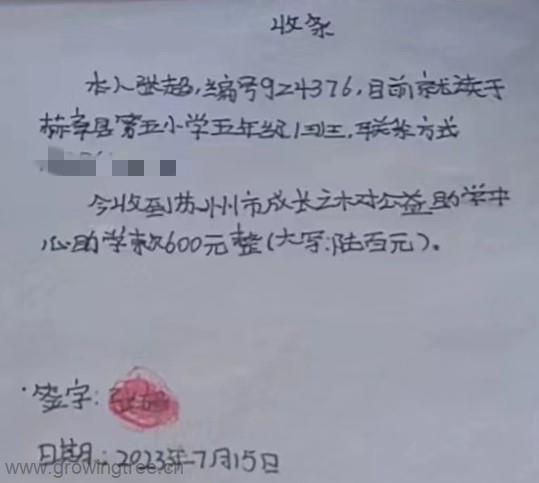 收条
本人张超,编号924376,目前就读于
赫章县第五小学五年级1班,联系方式
今收到苏州市成长之木对公益助学中
心助学款600元整(大写:陆百元)。
签字:张超
日期:2023年7月15日
www.growingtree.cn